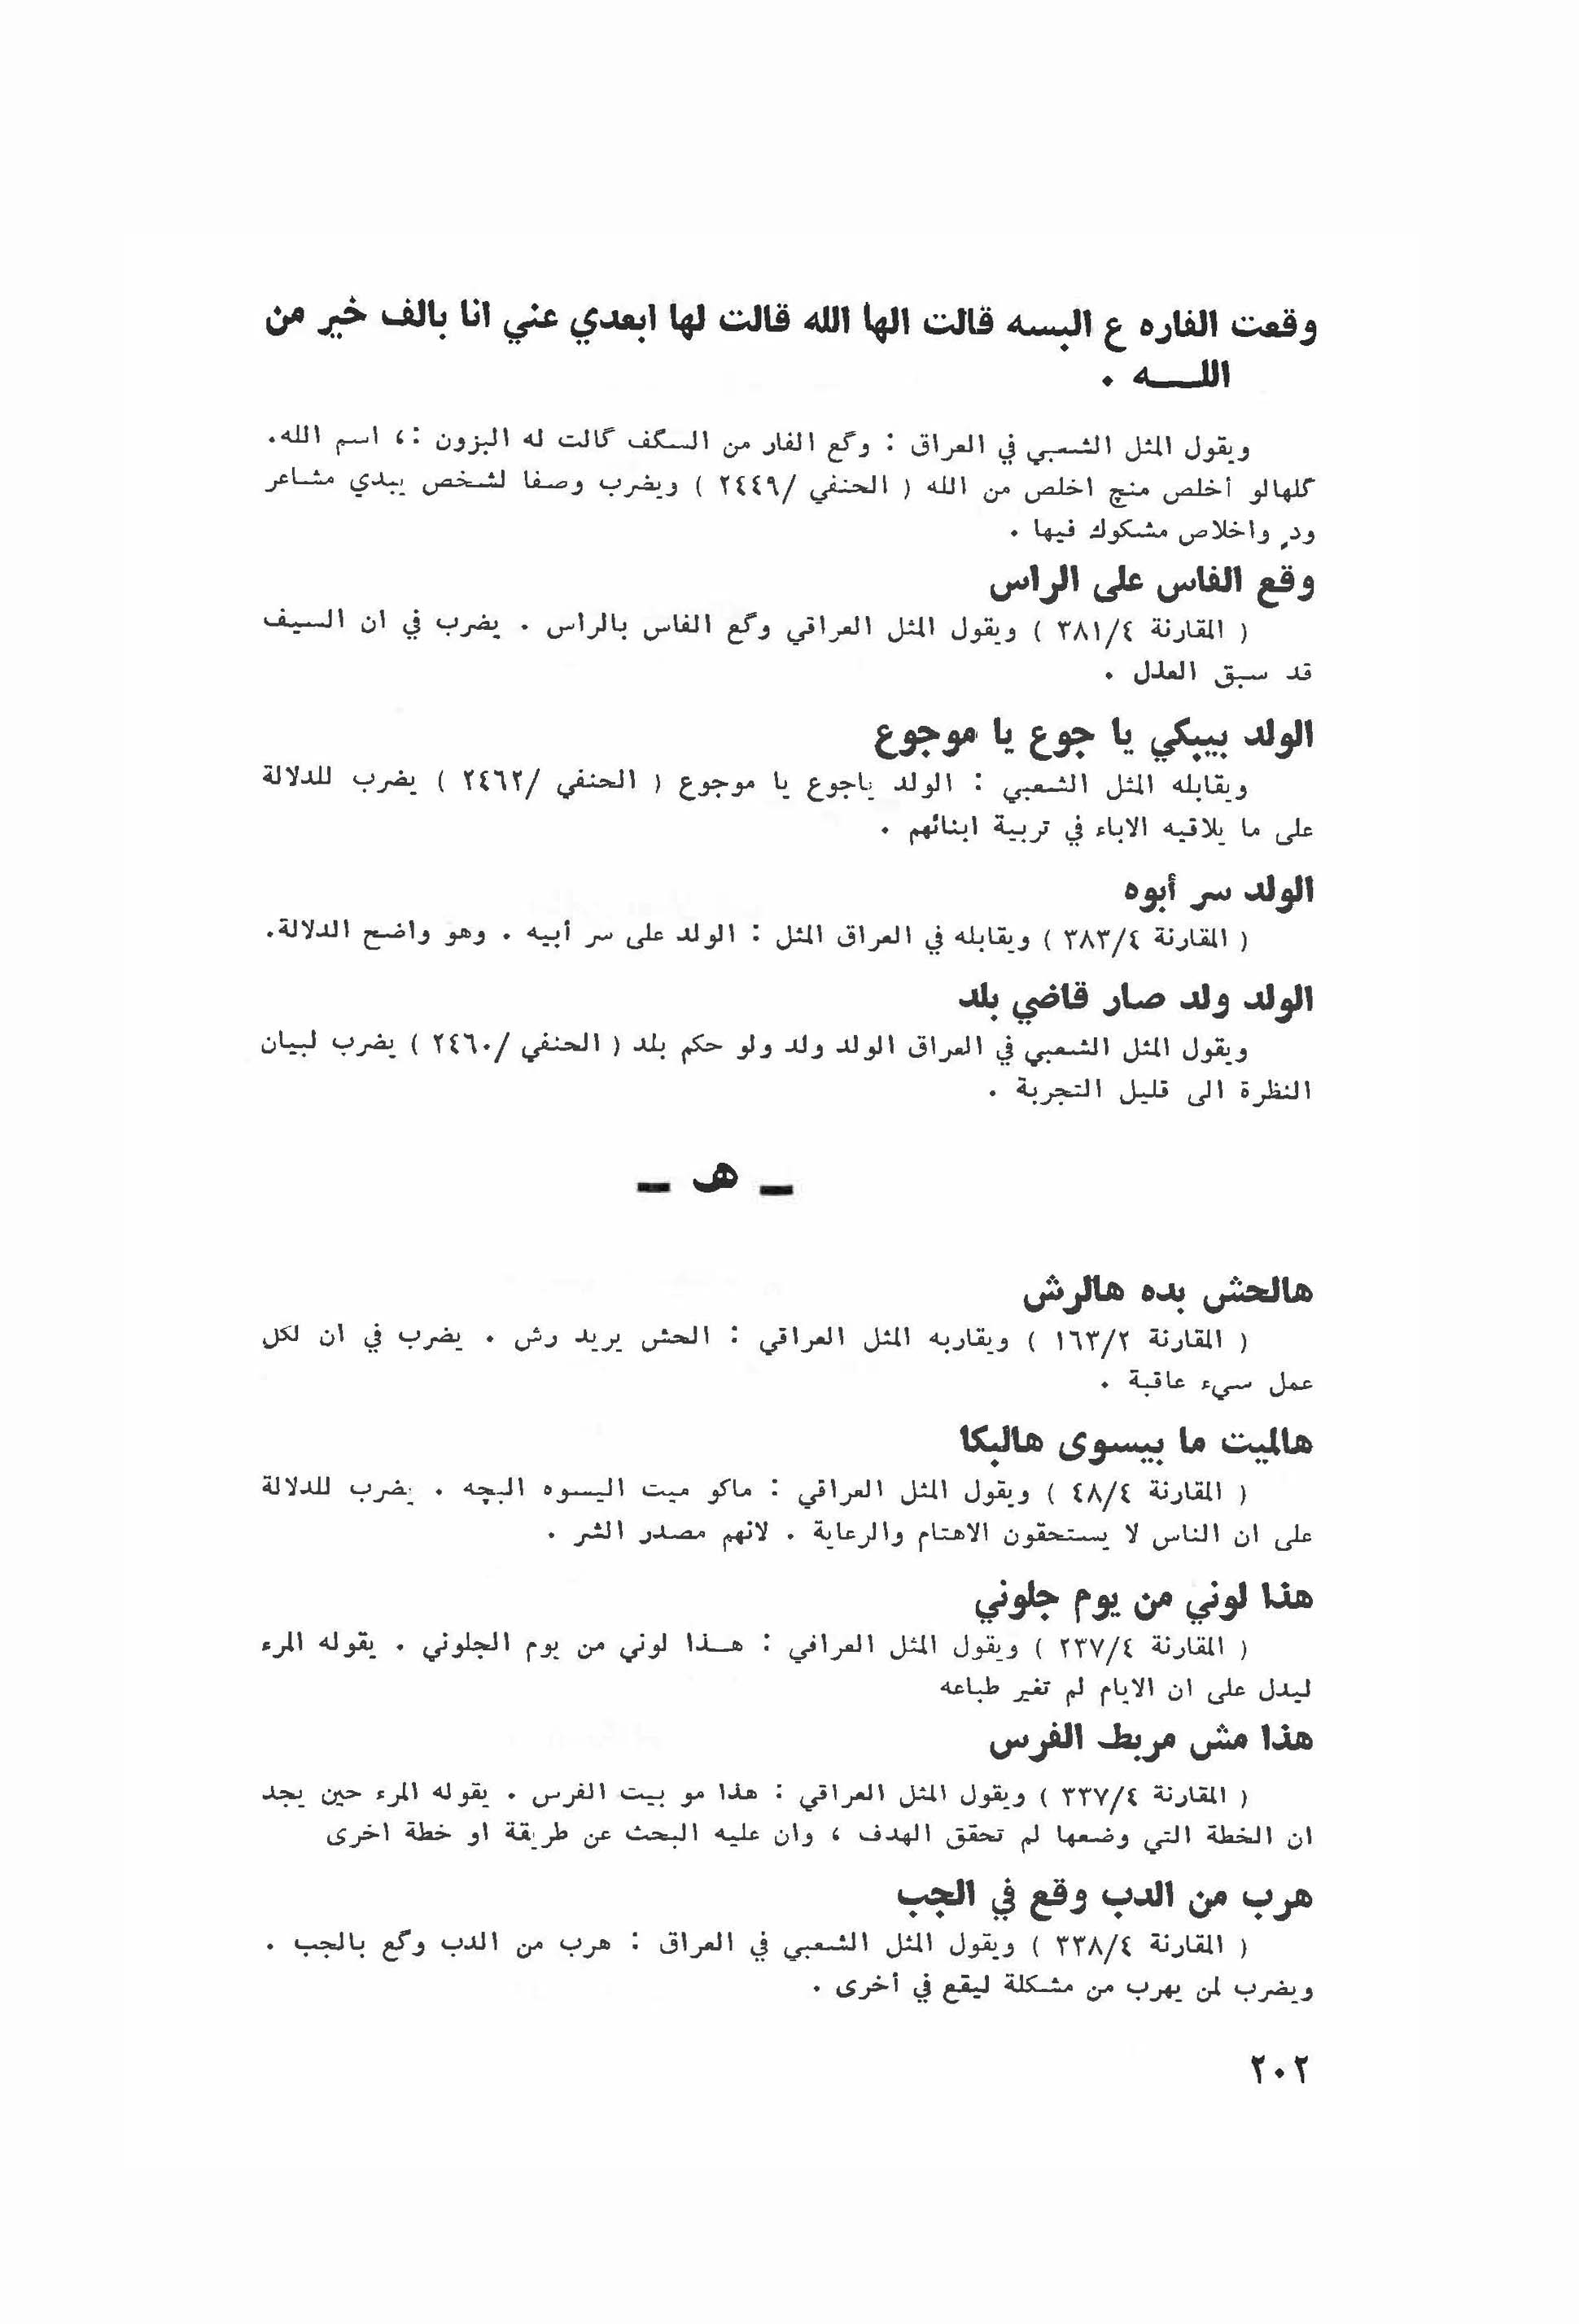 وقعت الفاره ع البسه قالت الها الله قالت لها ابعدي عني انا بالف خير من
اللـــه .
ويقول المثل الشعبي في العراق : وگع الفار من السگف گالت له البزون :، اسم الله.
گلهالو أخلص منچ اخلص من الله ( الحنفي /٢٤٤٩ ) ويضرب وصفا لشخص يبدي مشاعر
ودٍ واخلاص مشكوك فيها .
وقع الفاس على الراس
( المقارنة ٣٨١/٤ ) ويقول المثل العراقي وگع الفاس بالراس . يضرب في ان السيف
قد سبق العذل .
الولد بيبكي يا جوع يا موجوع
ويقابله المثل الشعبي : الولد ياجوع يا موجوع ( الحنفي /٢٤٦٢ ) يضرب للدلالة
على ما يلاقيه الاباء في تربية ابنائهم .
الولد سر أبوه
( المقارنة ٣٨٣/٤ ) ويقابله في العراق المثل : الولد على سر أبيه . وهو واضح الدلالة.
الولد ولد صار قاضي بلد
ويقول المثل الشعبي في العراق الولد ولد ولو حكم بلد ( الحنفي /٢٤٦٠ ) يضرب لبيان
النظرة الى قليل التجربة .
ـ هـ ـ
هالحش بده هالرش
( المقارنة ١٦٣/٢ ) ويقاربه المثل العراقي : الحش يريد رش . يضرب في ان لكل
عمل سيء عاقبة .
هالميت ما بيسوى هالبكا
( المقارنة ٤٨/٤ ) ويقول المثل العراقي : ماكو ميت اليسوه البچه . يضرب للدلالة
على ان الناس لا يستحقون الاهتام والرعاية . لانهم مصدر الشر .
هذا لوني من يوم جلوني
( المقارنة ٢٣٧/٤ ) ويقول المثل العراقي : هـذا لوني من يوم الجلوني . يقوله المرء
ليدل على ان الايام لم تغير طباعه
هذا مش مربط الفرس
( المقارنة ٣٣٧/٤ ) ويقول المثل العراقي : هذا مو بيت الفرس . يقوله المرء حين يجد
ان الخطة التي وضعها لم تحقق الهدف ، وان عليه البحث عن طريقة او خطة اخرى
هرب من الدب وقع في الجب
( المقارنة ٣٣٨/٤ ) ويقول المثل الشعبي في العراق : هرب من الدب وگع بالجب .
ويضرب لمن يهرب من مشكلة ليقع في أخرى .
٢٠٢